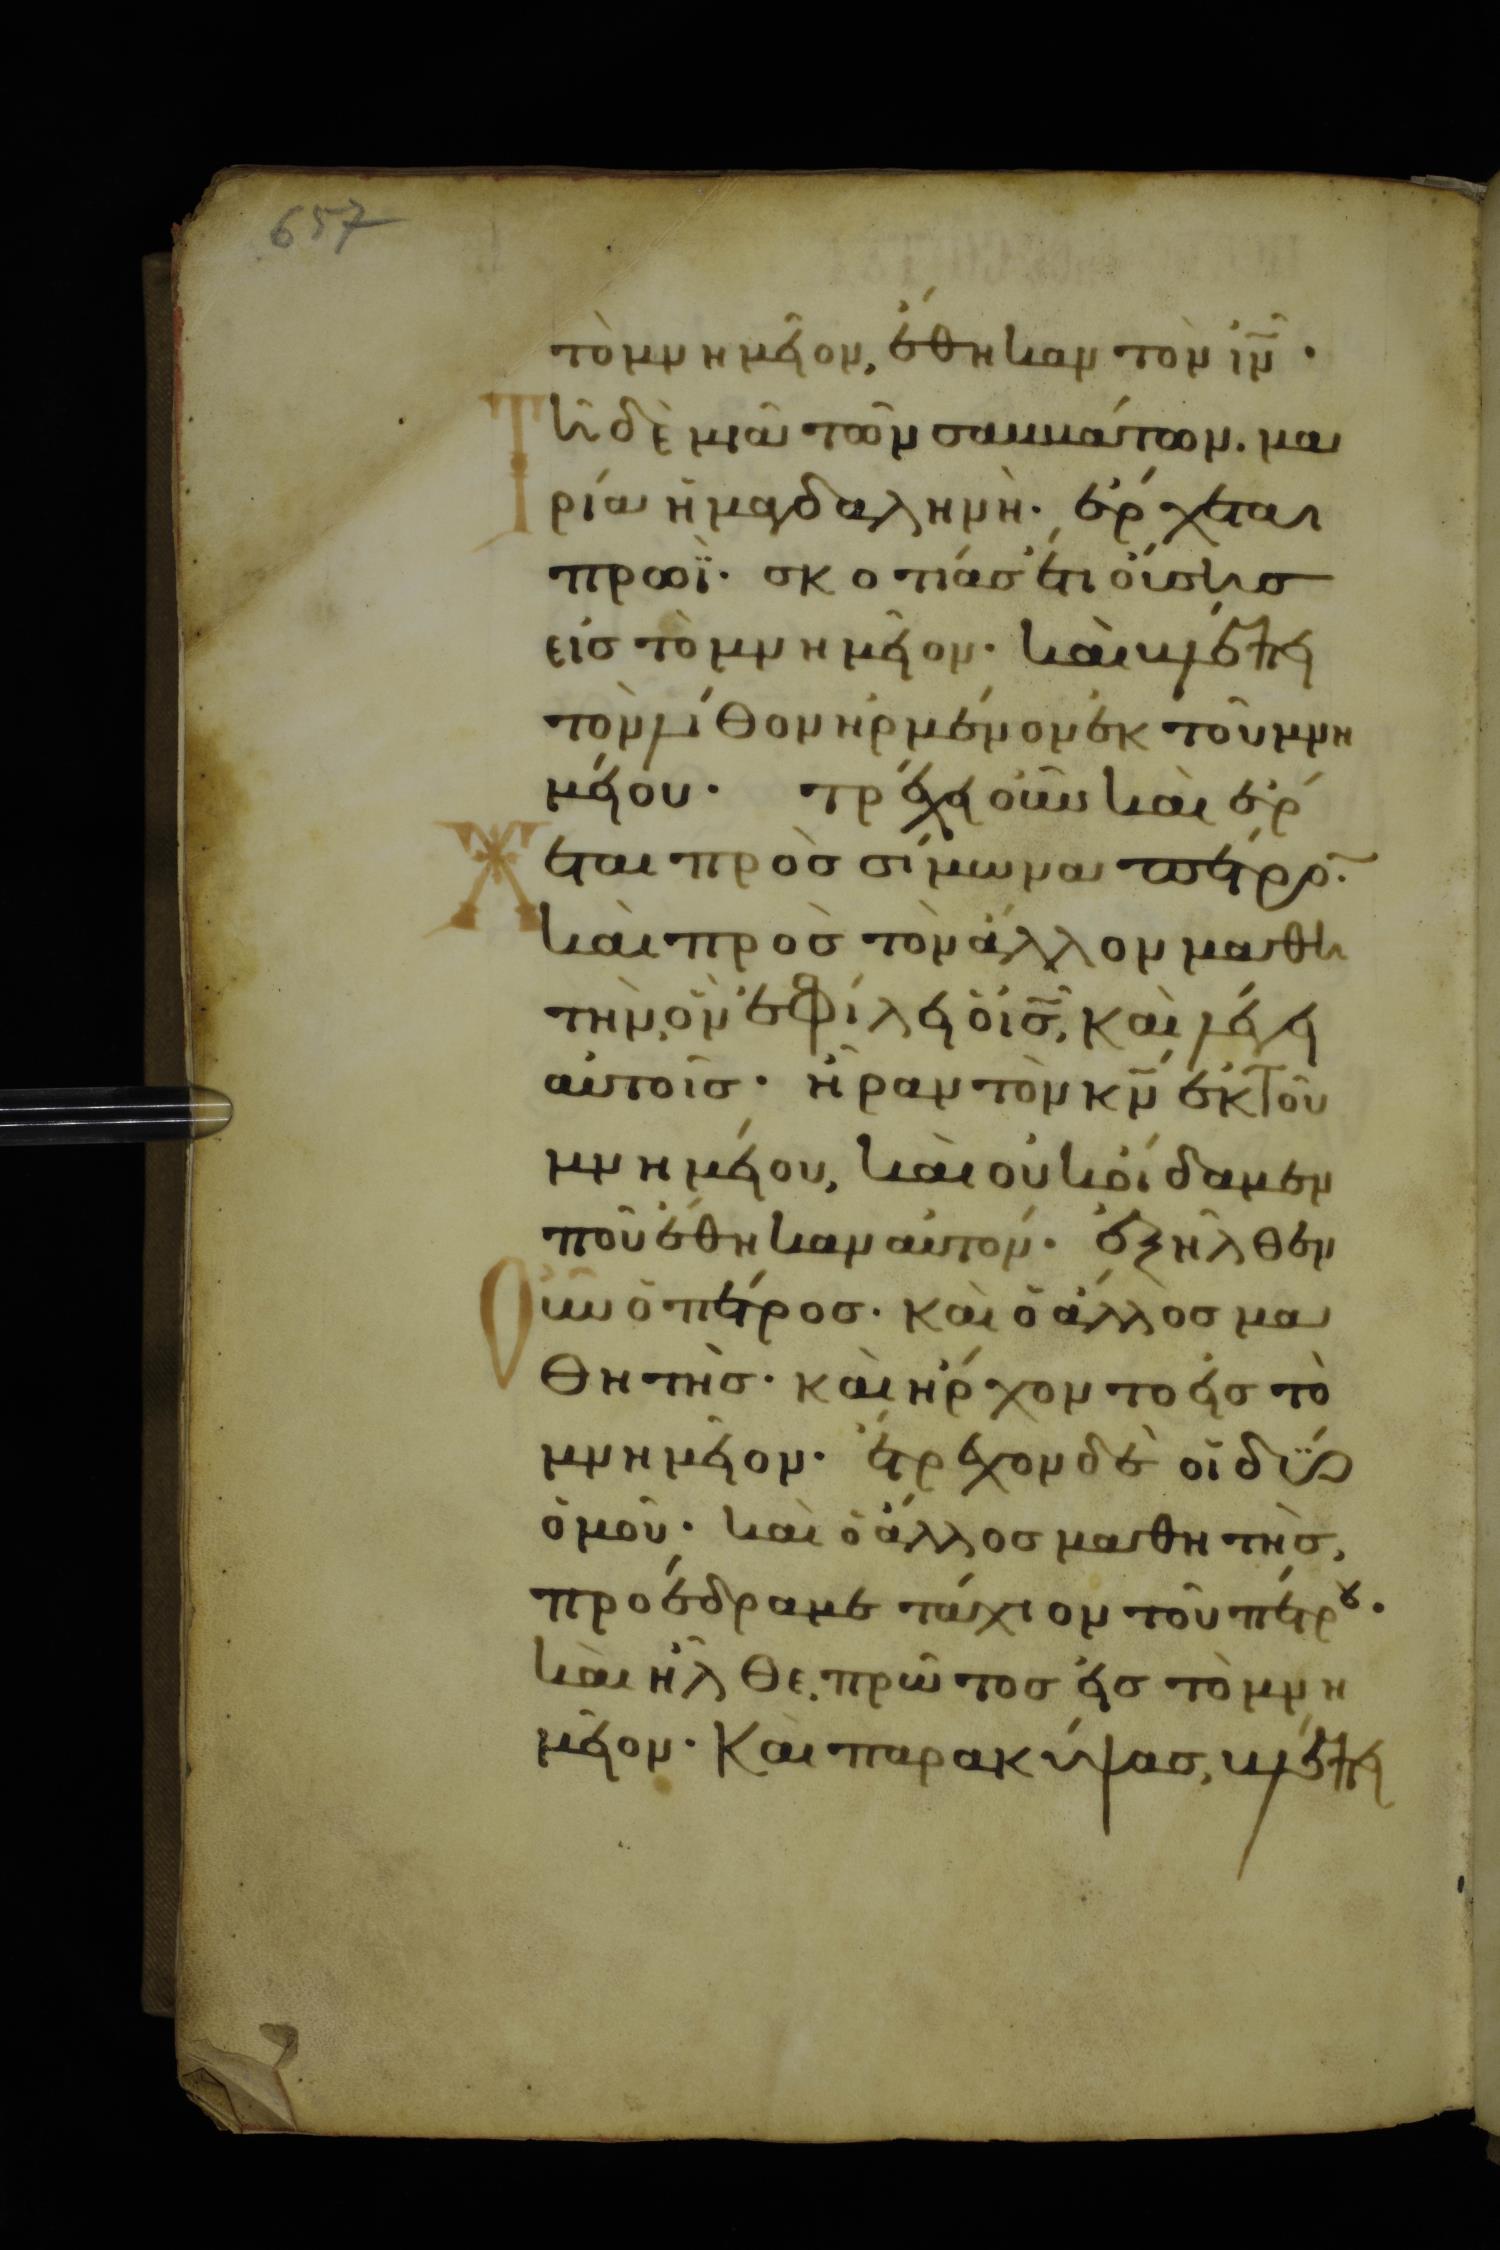 657
τὸ μνημεῖον, ἔθηκαν τὸν ἰν̅ ·
Τῆ δὲ μιᾶ τῶν σαββάτων. μα
ρία ἡ μαγδαληνὴ · ἔρχεται
πρωῒ · σκοτίας ἔτι οὔσης
εἰς τὸ μνημεῖον · καὶ βλέπει
τὸν λίθον ἠρμένον ἐκ τοῦ μνη
μείου · τρέχει οὖν καὶ ἔρ
Χεται πρὸς σίμωνα πέτρο̅ ·
καὶ πρὸς τὸν ἄλλον μαθη
τὴν, ὃν ἐφίλει ὁ ἰς̅, καὶ λέγει
αὐτοῖς · ἦραν τὸν κν̅ ἐκ τοῦ
μνημείου, καὶ οὐκ οἴδαμεν
ποῦ ἔθηκαν αὐτόν · ἐξῆλθεν
Οὖν ὁ πέτρος · καὶ ὁ ἄλλος μα
θητὴς · καὶ ἤρχοντο εἰς τὸ
μνημεῖον · ἔτρεχον δὲ οἱ δύο
ὁμοῦ · καὶ ὁ ἄλλος μαθητὴς,
προέδραμε τάχιον τοῦ πέτρου ·
καὶ ἦλθε, πρῶτος εἰς τὸ μνη
μεῖον · Καὶ παρακύψας, βλέπει